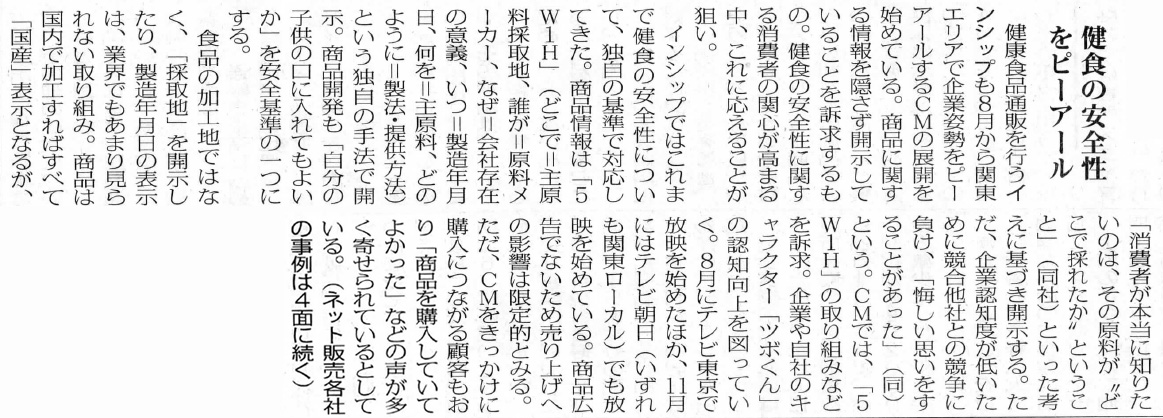 健食の安全性
をピーアール
　健康食品通販を行うイ
ンシップも8月から関東
エリアで企業姿勢をピー
アールするCMの展開を
始めている。商品に関す
る情報を隠さず開示して
いることを訴求するも
の。健食の安全性に関す
る消費者の関心が高まる
中、これに応えることが
狙い。
　インシップではこれま
で健食の安全性につい
て、独自の基準で対応し
てきた。商品情報は「5
W1H」（どこで＝主原
料採取地、誰が＝原料メ
ーカー、なぜ＝会社存在
の意義、いつ＝製造年月
日、何を＝主原料、どの
ように＝製法・提供方法）
という独自の手法で開
示。商品開発も「自分の
子供の口に入れてもよい
か」を安全基準の一つに
する。
　食品の加工地ではな
く、「採取地」を開示し
たり、製造年月日の表示
は、業界でもあまり見ら
れない取り組み。商品は
国内で加工すればすべて
「国産」表示となるが、
「消費者が本当に知りた
いのは、その原料が〝ど
こで採れたか〟というこ
と」（同社）といった考
えに基づき開示する。た
だ、企業認知度が低いた
めに競合他社との競争に
負け、「悔しい思いをす
ることがあった」（同）
という。CMでは、「5
W1H」の取り組みなど
を訴求。企業や自社のキ
ャラクター「ツボくん」
の認知向上を図ってい
く。8月にテレビ東京で
放映を始めたほか、11月
にはテレビ朝日（いずれ
も関東ローカル）でも放
映を始めている。商品広
告でないため売り上げへ
の影響は限定的とみる。
ただ、CMをきっかけに
購入につながる顧客もお
り「商品を購入していて
よかった」などの声が多
く寄せられているとして
いる。（ネット販売各社
の事例は4面に続く）